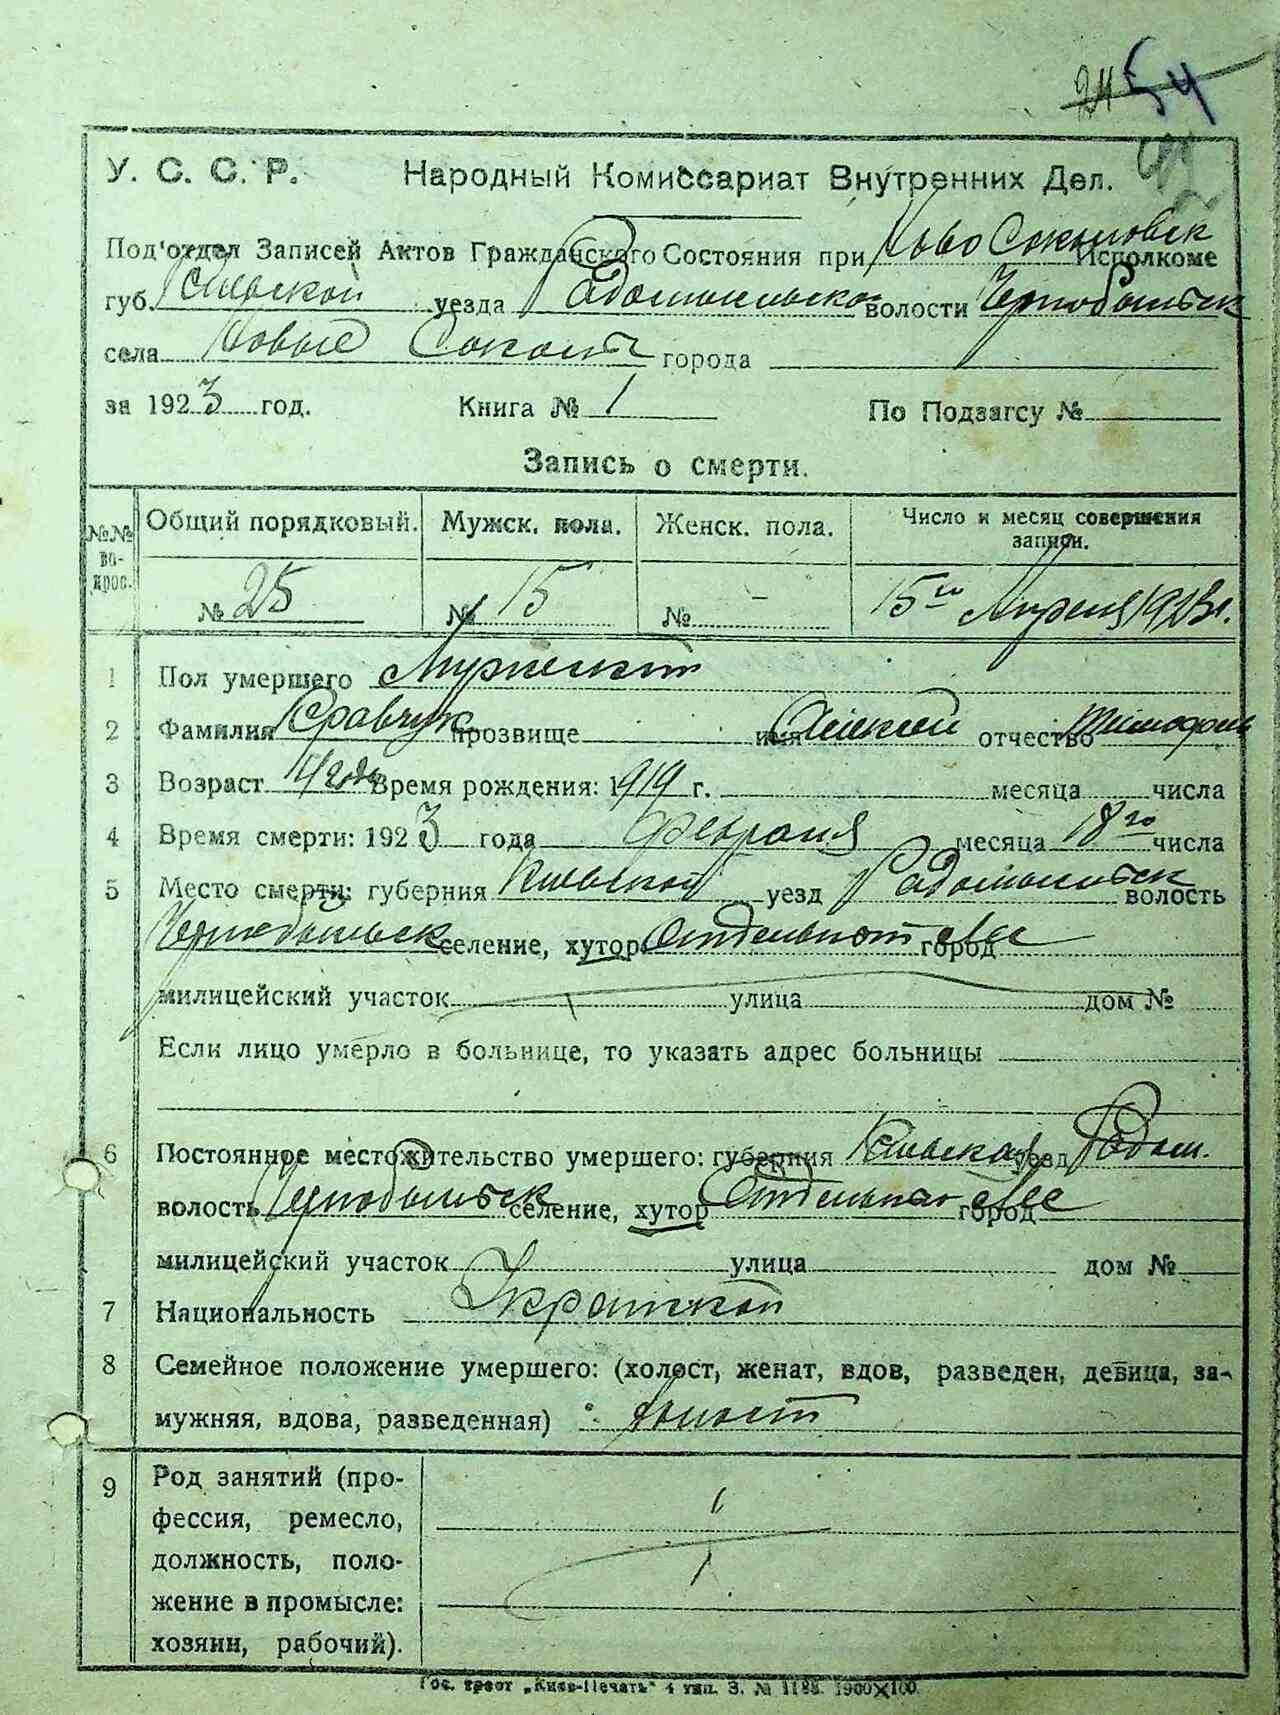 24 54
У. С. С. Р. Народный Комиссариат Внутренних Дел.
Под'отдел Записей Актов Гражданского Состояния при Ново Соколовск Исполкоме
губ. Киевской уезда Радомысльског волости Чернобыльск
села Новые Соколы города
за 1923 год. Книга № 1 По Подзагсу №
Запись о смерти.
№№ во-прос. Общий порядковый. Мужск. пола. Женск. пола. Число и месяц совершения
записи.
№ 25 № 15 № - 15го Апреля 1923г.
1 Пол умершего Мужской
2 Фамилия Кравчук прозвище имя Алексей отчество Тимофеев
3 Возраст 4 года Время рождения: 1919 г. месяца числа
4 Время смерти: 1923 года Февраля месяца 18го числа
5 Место смерти: губерния Киевской уезд Радомысльск волость
Чернобыльск селение, хутор город
милицейский участок улица дом №
Если лицо умерло в больнице, то указать адрес больницы
6 Постоянное местожительство умершего: губерния Киевская уезд Радом.
волость Чернобыльск селение, хутор город
милицейский участок улица дом №
7 Национальность
8 Семейное положение умершего: (холост, женат, вдов, разведен, девица, за-
мужняя, вдова, разведенная) холост
9 Род занятий (про-
фессия, ремесло,
должность, поло-
жение в промысле:
хозяин, рабочий).
Гос. трест „Киев-Печать" 4 тип. З. № 1188. 1900×100.